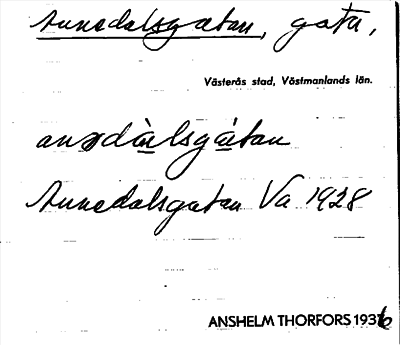 Annedalsgatan, gata,
Västerås stad, Västmanlands län.
anədàlsgàtan
Annedalsgatan Va 1928
ANSHELM THORFORS 1936